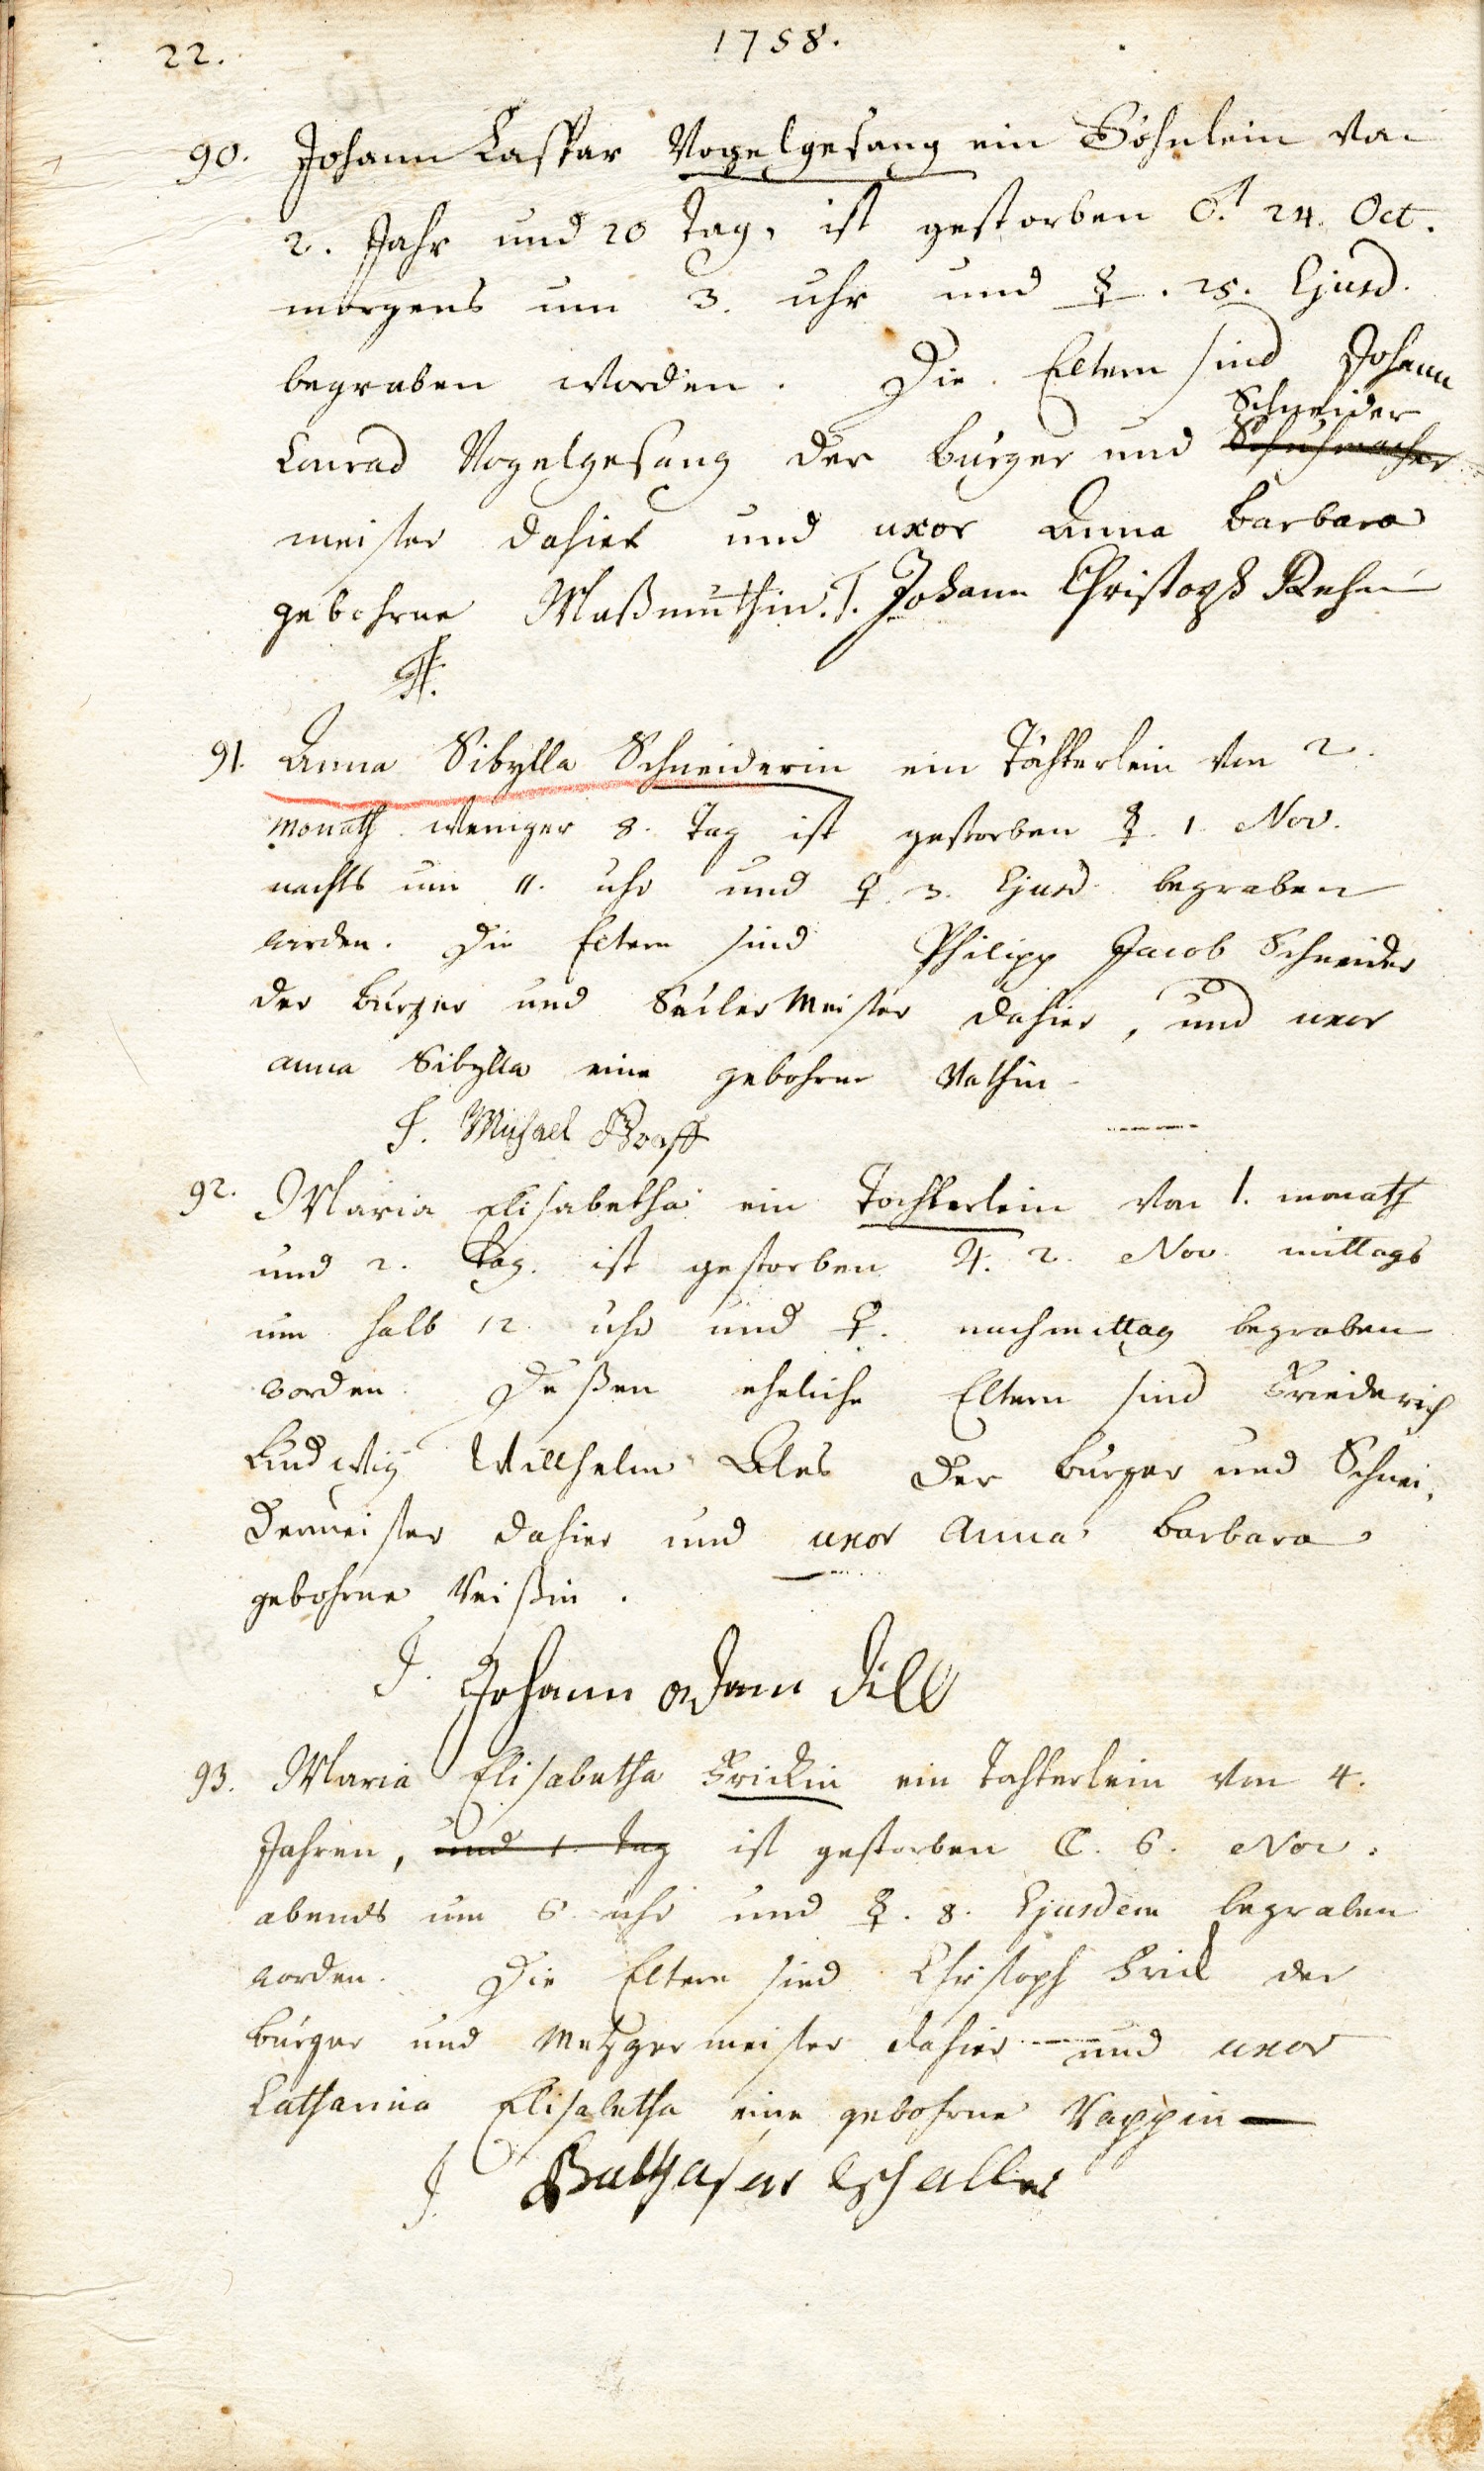 22.
1758.
90. Johann Caspar Vogelgesang ein Söhnlein von
2. Jahr und 20 Tag, ist gestorben ♂. 24. Oct.
morgens um 3. uhr und ☿. 25. Ejusd.
begraben worden. Die Eltern sind Johann
Schneider
Conrad Vogelgesang der burger und Schuhmacher
meister dahier und uxor Anna barbara
gebohrne Maßmuthin. T. Johann Christoph Rehm
91. Anna Sibylla Schneiderin ein Töchterlein von 2.
Monath weniger 8. Tag ist gestorben ☿. 1. Nov.
nachts um 11. uhr und ♀. 3. Ejusd. begraben
worden. Die Eltern sind Philipp Jacob Schneider
der burger und Seiler Meister dahier, und uxor
anna Sibylla eine gebohrne
T. Michael
92. Maria Elisabetha ein Tochterlein von 1. monath
und 2. Tag. ist gestorben ♃. 2. Nov. mittags
um halb 12. uhr und ♀. nachmittag begraben
worden. Deßen eheliche Eltern sind Friederich
Ludwig Willhelm der burger und Schnei,
dermeister dahier und uxor anna barbara
gebohrne Weißin.
T. Johann adam Dill
93. Maria Elisabetha Frickin ein Tochterlein von 4.
Jahren, und 1. Tag ist gestorben ☾. 6. Nov.
abends um 6. uhr und ☿. 8. Ejusdem begraben
worden. Die Eltern sind Christoph Frick der
burger und Metzgermeister dahier und uxor
Catharina Elisabetha eine gebohrne Wappin
T. Balthasar